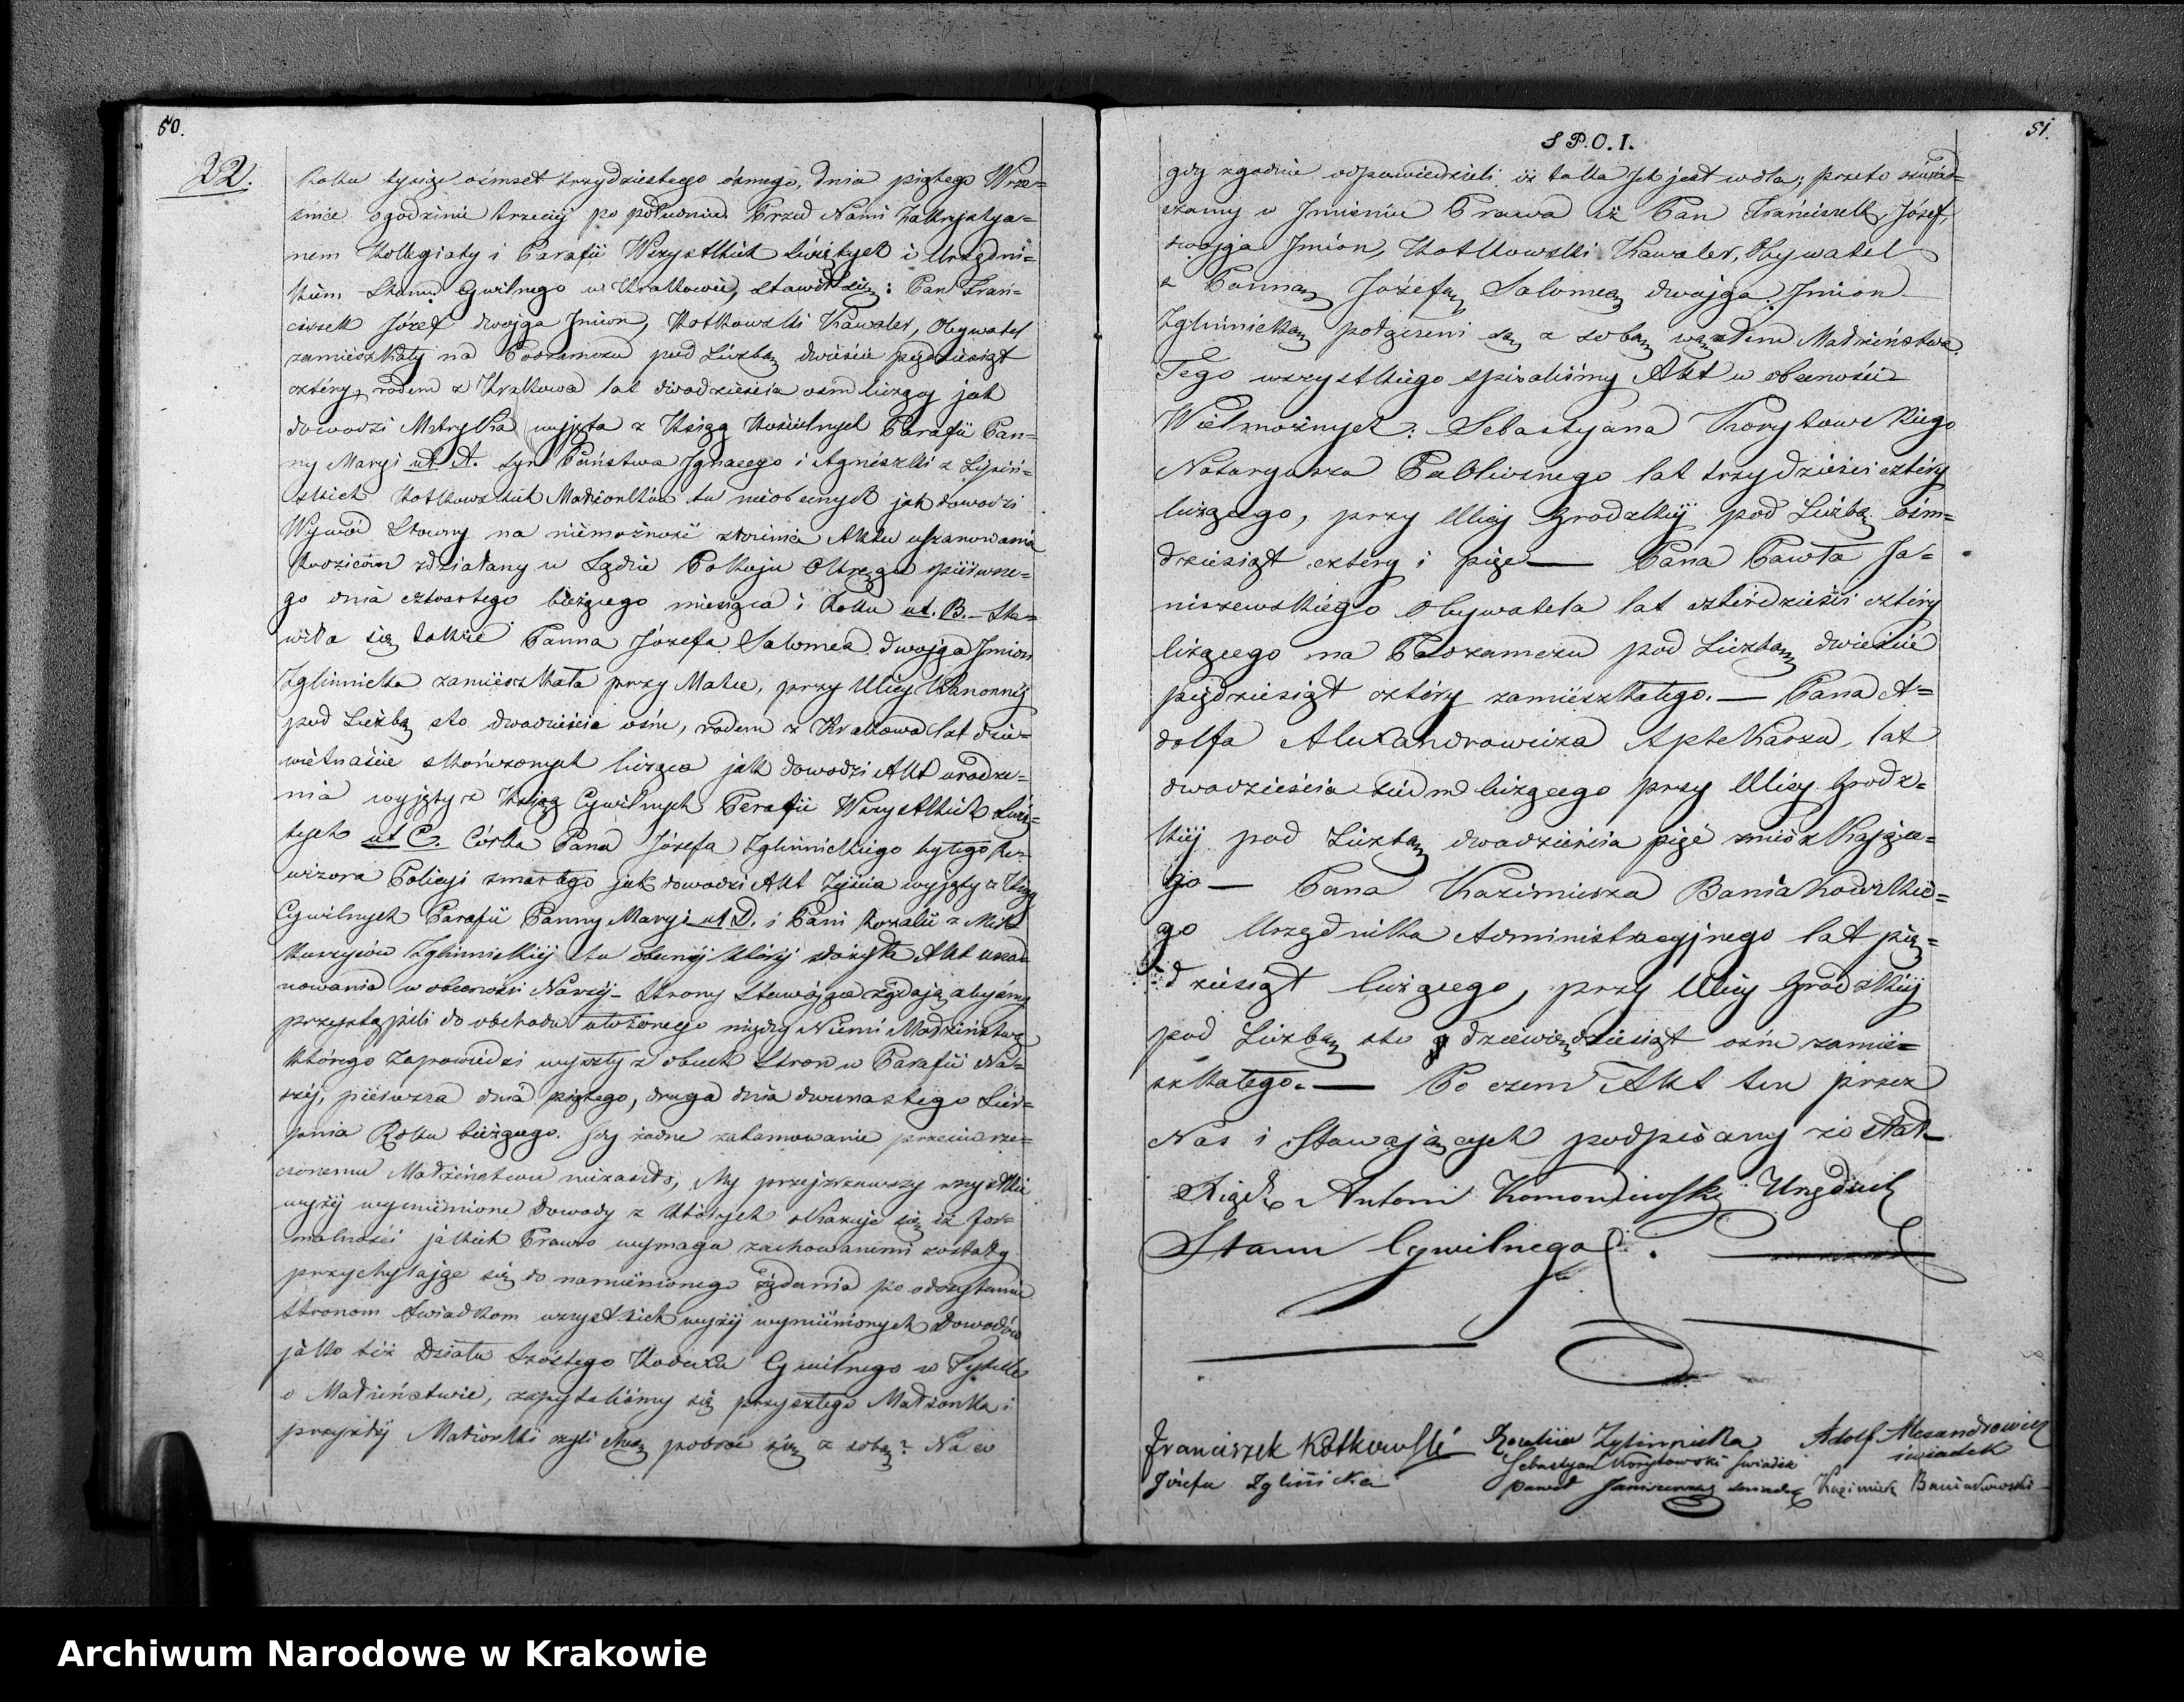 50.
22.
Roku tysiąc ośmset trzydziestego ósmego, dnia piątego Wrze=
śnia o godzinie trzeciej po południu. Przed Nami Zakrystya=
nem Kollegiaty i Parafii Wszystkich Świętych i Urzędni=
kiem Stanu Cywilnego w Krakowie, stawił się: Pan Fran=
ciszek Józef dwojga Imion, Kotkowski Kawaler, Obywatel
zamieszkały na Podzamczu pod Liczbą dwieście pięćdziesiąt
cztéry, rodem z Krakowa lat dwadzieścia ośm liczący jak
dowodzi Metryka wyjęta z Ksiąg Kościelnych Parafii Pan=
ny Maryi ut A. syn Państwa Ignacego i Agnieszki z Lipiń=
skich Kotkowskich Małżonków tu nieobecnych jak dowodzi
Wywód Słowny na niemożność złożenia Aktu uszanowania
Rodzicom zdziałany w Sądzie Pokoju Okręgu piérwsze=
go dnia czwartego bieżącego miesiąca i Roku ut. B. – Sta=
wiła się także Panna Józefa Salomea dwojga Imion
Zglinnicka zamieszkała przy Matce, przy Ulicy Kanonnéj
pod Liczbą sto dwadzieścia ośm, rodem z Krakowa lat dzie=
więtnaście skończonych licząca jak dowodzi Akt urodze=
nia wyjęty z Ksiąg Cywilnych Parafii Wszystkich Świę=
tych ut C. Córka Pana Józefa Zglinnickiego byłego Re=
wizora Policyi zmarłego jak dowodzi Akt Zejścia wyjęty z Ksiąg
Cywilnych Parafii Panny Maryi ut D. i Pani Rozalii z
Zglinnickiéj tu obecnéj któréj złożyła Akt usza=
nowania w obecności Naszéj – Strony Stawające żądają abyśmy
przystąpili do obchodu ułożonego między Niemi Małżeństwa
którego Zapowiedzi wyszły z obuch Stron w Parafii Na=
széj, piérwsza dnia piątego, druga dnia dwunastego Sier=
pnia Roku bieżącego. Gdy żadne zatamowanie przeciw rze=
czonemu Małżeństwu niezaszło, My przejrzawszy wszystkie
wyżéj wymienione Dowody z których okazuje się iż for=
malności jakich Prawo wymaga zachowanemi zostały
przychylając się do namienionego żądania po odczytaniu
Stronom Świadkom wszystkich wyżéj wymienionych Dowodów
jako też Działu szóstego Kodexu Cywilnego w Tytule
o Małżeństwie, zapytaliśmy się przyszłego Małżonka i
przyszłéj Małżonki czyli chcą pobrać się z sobą? Na co
S P. O. I.
51.
gdy zgodnie odpowiedzieli iż taka Ich jest wola; przeto oświad=
czamy w Imieniu Prawa iż Pan Franciszek, Józef,
dwojga Imion, Kotkowski Kawaler, Obywatel
z Panną Józefą Salomeą dwojga Imion
Zglinnicką połączeni są z sobą węzłem Małżeństwa.
Tego wszystkiego spisaliśmy Akt w obecności
Wielmożnych: Sebastyana Korytowskiego
Notaryusza Publicznego lat trzydzieści cztéry
liczącego, przy Ulicy Grodzkiéj pod Liczbą ośm=
dziesiąt cztéry i pięć — Pana Pawła Ja=
niszewskiego Obywatela lat czterdzieści cztéry
liczącego na Podzamczu pod Liczbą dwieście
pięćdziesiąt cztéry zamieszkałego. — Pana A=
dolfa Alexandrowicza Aptekarza, lat
dwadzieścia siedm liczącego przy Ulicy Grodz=
kiéj pod Liczbą dwadzieścia pięć zmieszkające=
go — Pana Kazimiérza Baniakowskie=
go Urzędnika Administracyjnego lat pię=
dziesiąt liczącego, przy Ulicy Grodzkiéj
pod Liczbą sto dziewięćdziesiąt ośm zamie=
szkałego. — Po czem Akt ten przez
Nas i Stawających podpisany został
Xiądz Antoni Urzędnik
Stanu Cywilnego
Franciszek Kotkowski Rozalia Zglinnicka Adolf Alexandrowicz
świadek
Sebastyan Korytowski świadek
Józefa Zglinicka Paweł Janiszewski świadek Kazimierz Baniakowski
Archiwum Narodowe w Krakowie